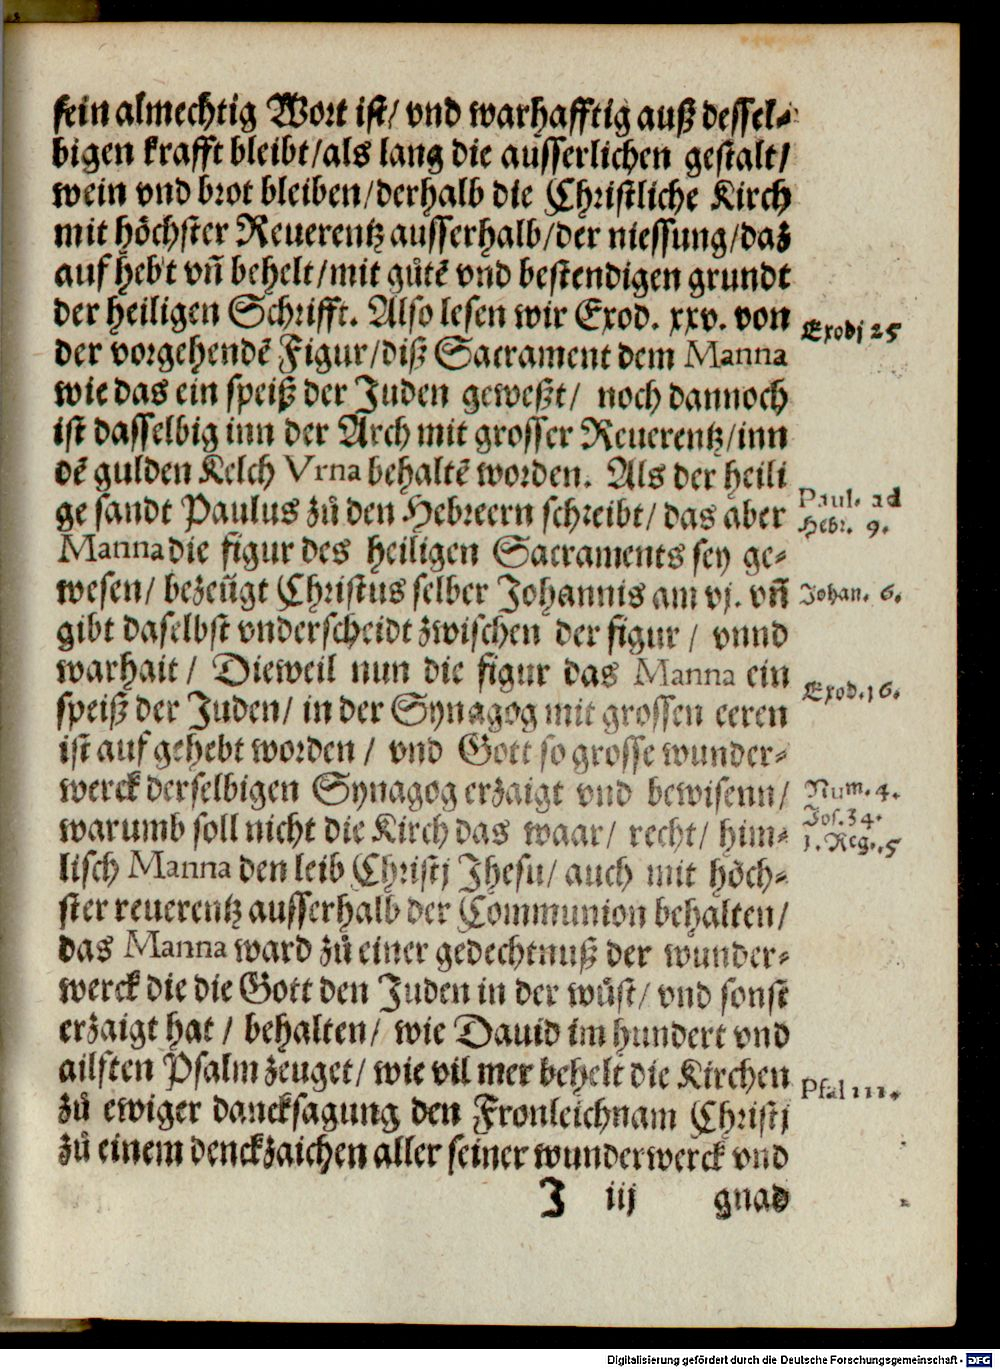 sein almechtig Wort ist/ vnd warhafftig auß dessel-
bigen krafft bleibt/als lang die ausserlichen gestalt/
wein vnd brot bleiben/derhalb die Christliche Kirch
mit höchster Reuerentz ausserhalb/der niessung/das
auf hebt vñ behelt/mit gůtẽ vnd bestendigen grundt
der heiligen Schrifft. Also lesen wir Exod. xxv. von
Exodj 25
der vorgehendẽ Figur/diß Sacrament dem Manna
wie das ein speiß der Juden geweßt/ noch dannoch
ist dasselbig inn der Arch mit grosser Reuerentz/inn
dẽ gulden Kelch Vrna behaltẽ worden. Als der heili
ge sandt Paulus zů den Hebreern schreibt/ das aber
Paul. ad
Hebr. 9.
Manna die figur des heiligen Sacraments sey ge-
wesen/ bezeügt Christus selber Johannis am vj. vñ
Johan. 6.
gibt daselbst vnderscheidt zwischen der figur / vnnd
warhait / Dieweil nun die figur das Manna ein
Exod.16.
speiß der Juden/ in der Synagog mit grossen eeren
ist auf gehebt worden / vnd Gott so grosse wunder-
werck derselbigen Synagog erzaigt vnd bewisenn/
Num. 4.
Jos. 34.
1. Reg. 5
warumb soll nicht die Kirch das waar/ recht/ him-
lisch Manna den leib Christj Jhesu/ auch mit höch-
ster reuerentz ausserhalb der Communion behalten/
das Manna ward zů einer gedechtnuß der wunder-
werck die die Gott den Juden in der wůst/ vnd sonst
erzaigt hat / behalten/ wie Dauid im hundert vnd
ailften Psalm zeuget/ wie vil mer behelt die Kirchen
Psal 111.
zů ewiger dancksagung den Fronleichnam Christj
zů einem denckzaichen aller seiner wunderwerck vnd
J iij gnad
Digitalisierung gefördert durch die Deutsche Forschungsgemeinschaft - DFG